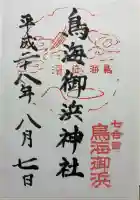 七合目
鳥海御浜
鳥海御浜神社
平成二十八年八月七日